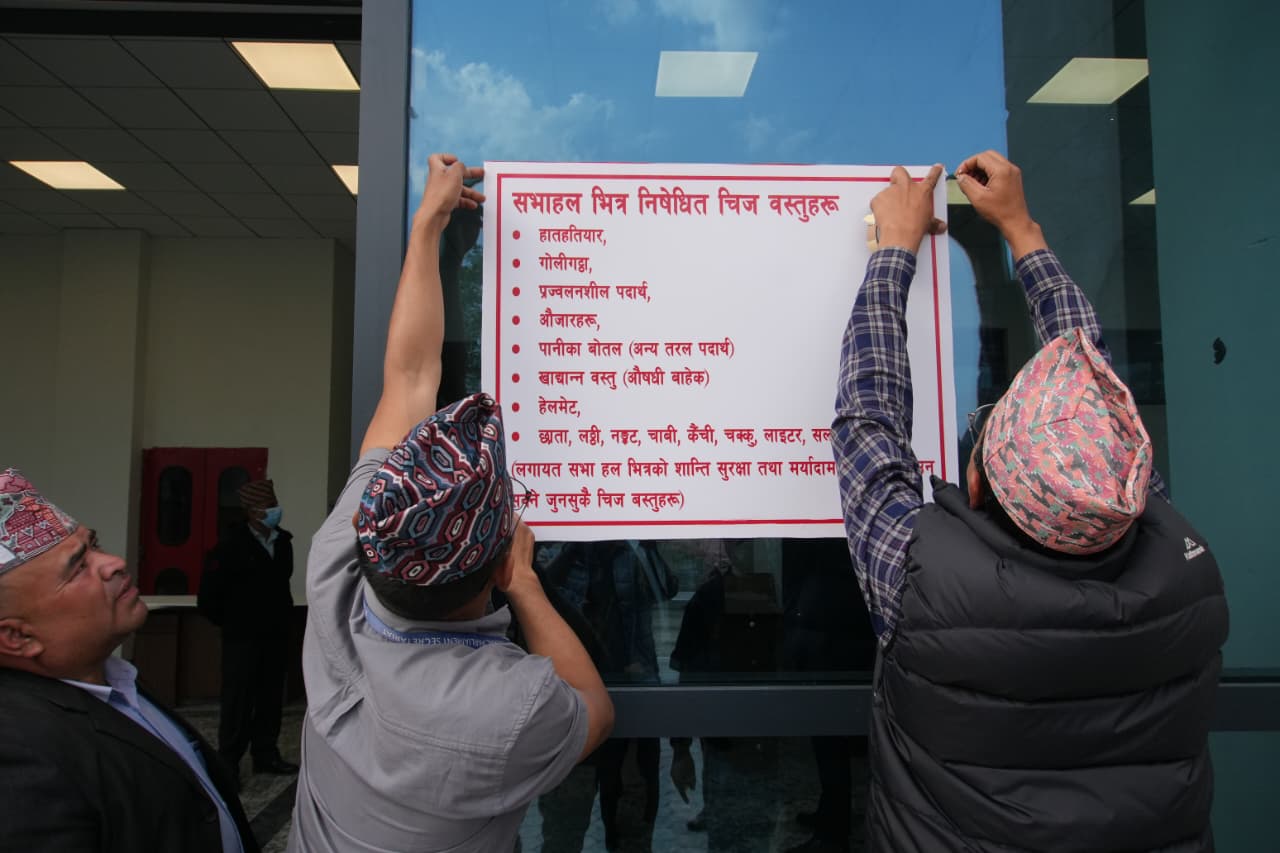 सभाहल भित्र निषेधित चिज वस्तुहरू
• हातहतियार,
• गोलीगठ्ठा,
• प्रज्वलनशील पदार्थ,
• औजारहरू,
• पानीका बोतल (अन्य तरल पदार्थ)
• खाद्यान्न वस्तु (औषधी बाहेक)
• हेलमेट,
• छाता, लठ्ठी, नङ्कट, चाबी, कैंची, चक्कु, लाइटर,
(लगायत सभा हल भित्रको शान्ति सुरक्षा तथा
जुनसुकै चिज बस्तुहरू)
PARLIAMENT SECRETARIAT